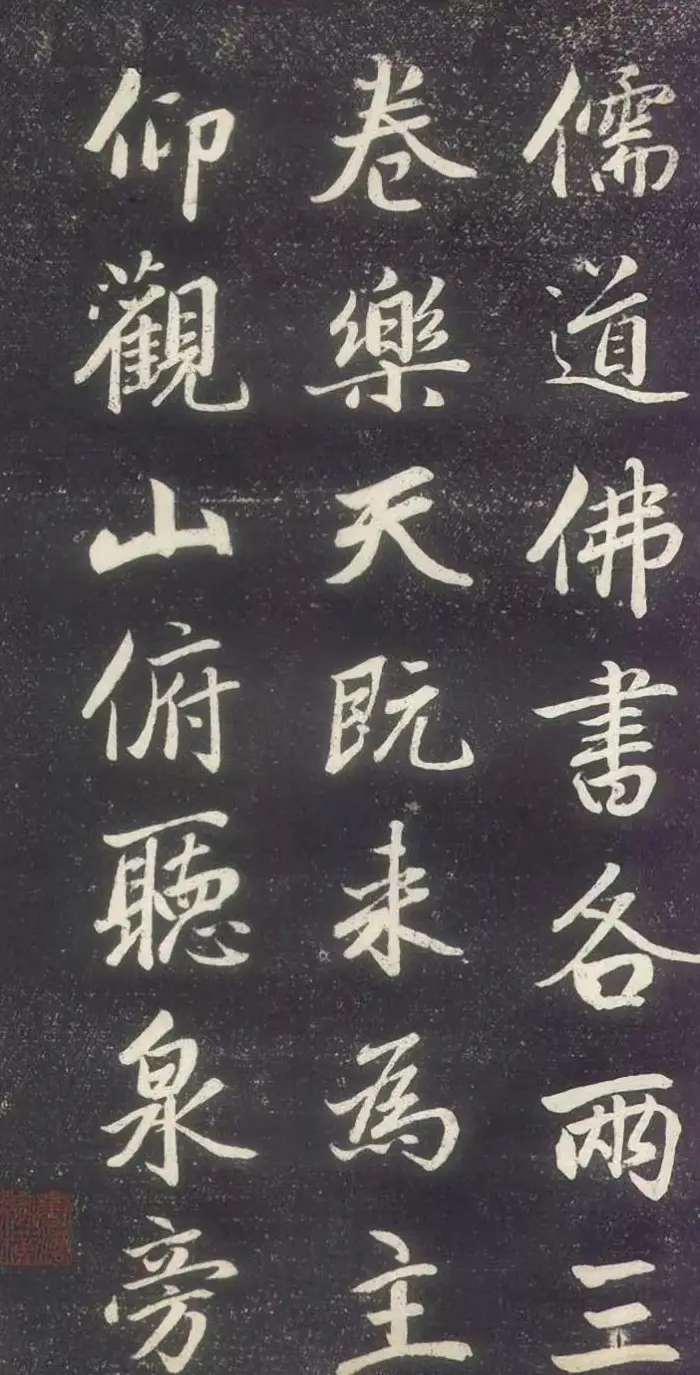 儒道佛書各兩三
卷樂天既来為主
仰觀山俯聽泉旁